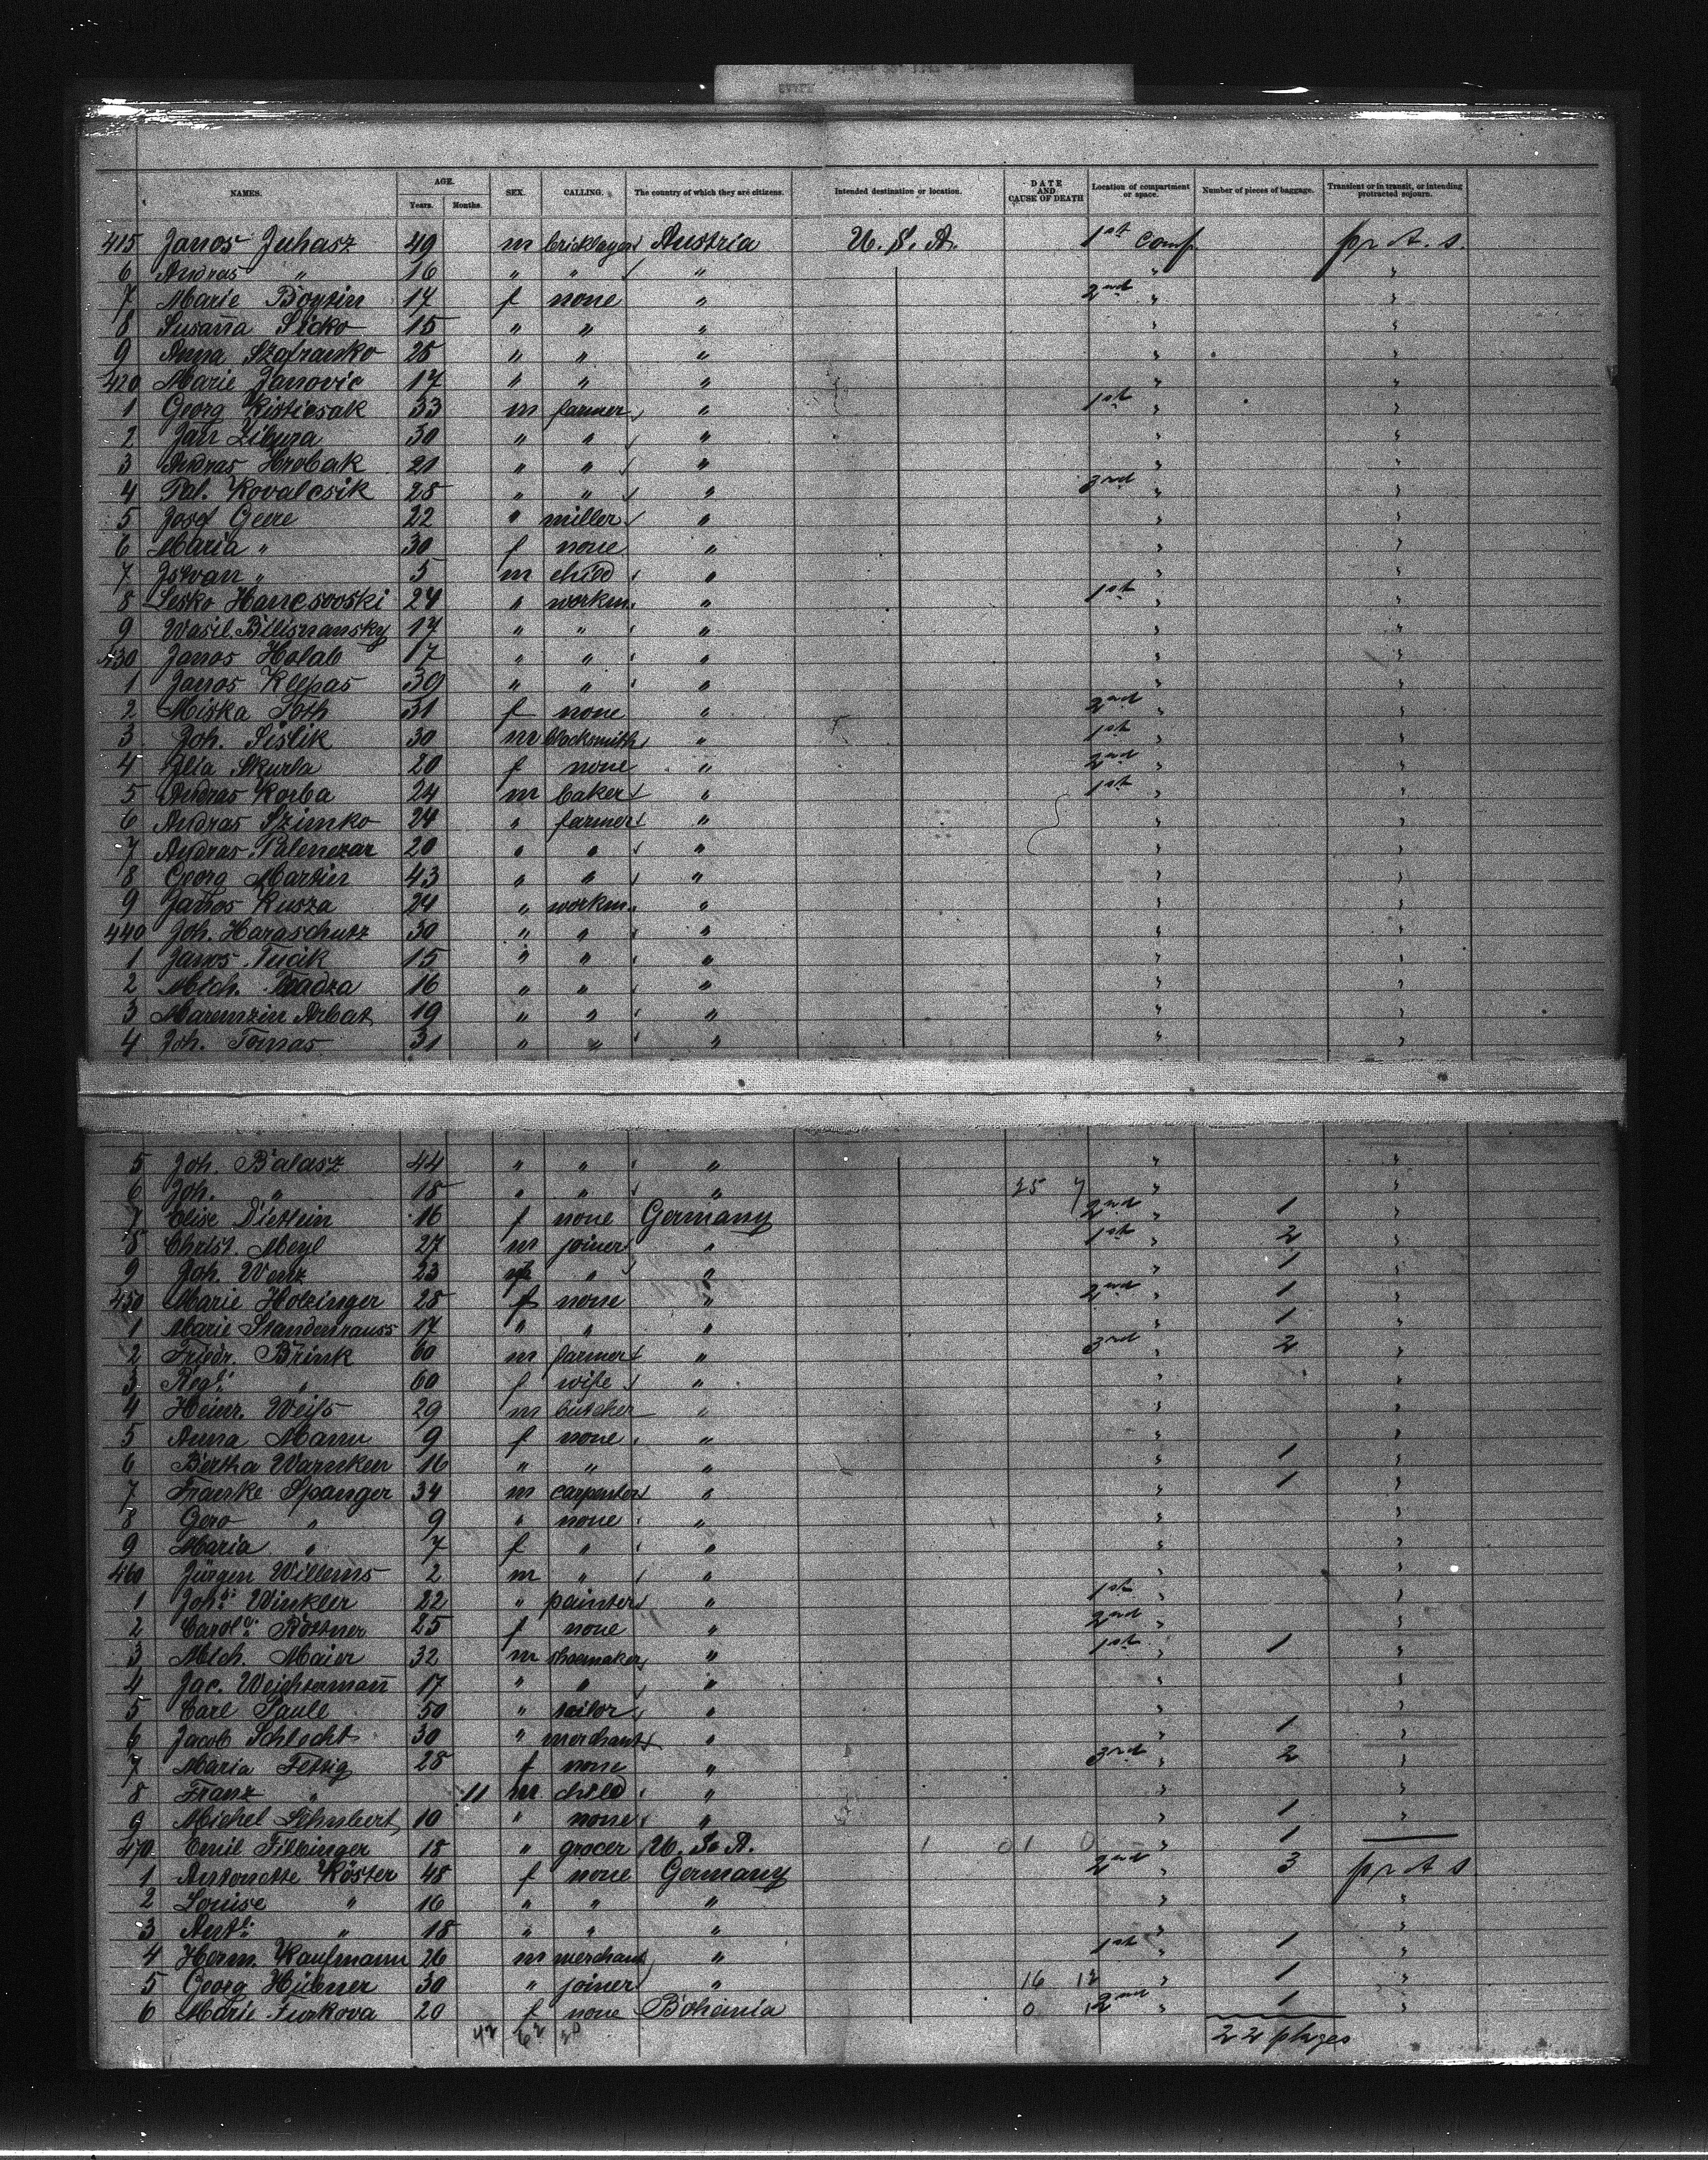 NAMES. AGE. Years. Months. SEX. CALLING. The country of which they are citizens. Intended destination or location. DATE AND CAUSE OF DEATH Location of compartment or space. Number of pieces of baggage. Transient or in transit, or intending protracted sojourn.
415 Janos Juhasz 49 m bricklayer Austria U. S. A. 1st comp pr. A. s.
6 Andras " 16 " " " " "
7 Marie 17 f none " 2nd " "
8 Susaña Sicko 15 " " " " "
9 Anna Szafranko 25 " " " " "
420 Marie Janovic 17 " " " " "
1 Georg 33 m farmer " 1st " "
2 Jan Zibura 30 " " " " "
3 Andras Hrobak 21 " " " " "
4 Pal. Kovalcsik 28 " " " 3rd " "
5 Josef Geere 22 " miller " " "
6 Maria " 30 f none " " "
7 Istvan " 5 m child " " "
8 Lesko 24 " workm. " 1st " "
9 Wasil. Bilisnansky 17 " " " " "
430 Janos Holab 17 " " " " "
1 Janos Klepas 39 " " " " "
2 Miska Toth 31 f none " 2nd " "
3 Joh. Sislik 30 m blacksmith " 1st " "
4 Skurla 20 f none " 2nd " "
5 Andras Korba 24 m baker " 1st " "
6 Andras Szimko 24 " farmer " " "
7 Andras 20 " " " " "
8 Georg Martin 43 " " " " "
9 Janos Kusza 24 " workm. " " "
440 Joh. Haraschutz 30 " " " " "
1 Janos 15 " " " " "
2 Mich. 16 " " " " "
3 Arbat 19 " " " " "
4 Joh. Tomas 31 " " " " "
5 Joh. Balasz 44 " " " " "
6 Joh. " 18 " " " 25 7 " "
7 Elise Dietlein 16 f none Germany 2nd " 1 "
8 Christ. Meyl 27 m joiner " 1st " 2 "
9 Joh. Wenz 23 m " " " 1 "
450 Marie Holzinger 28 f none " 2nd " 1 "
1 Marie Standenrauss 17 " " " " 1 "
2 Friedr. Brink 60 m farmer " 3rd " 2 "
3 Regi. " 60 f wife " " "
4 Heinr. Weifs 29 m butcher " " "
5 Anna Mann 9 f none " " "
6 Bertha Warnken 16 " " " " 1 "
7 Franke Spanger 34 m carpenter " " 1 "
8 Gero " 9 " none " " "
9 Maria " 7 f " " " "
460 Jürgen Willems 2 m " " " "
1 Joh. Winkler 22 " painter " 1st " "
2 Carol. Röttner 25 f none " 2nd " "
3 Mich. Maier 32 m shoemaker " 1st " 1 "
4 Jac. Weichsermañ 17 " " " " "
5 Carl Paule 50 " tailor " " "
6 Jacob Schlecht 30 " merchant " " 1 "
7 Maria Fettig 28 f none " 3rd " 2 "
8 Franz " 11 m child " " "
9 Michel Schubert 10 " none " " 1 "
470 Emil Filbinger 18 " grocer U. S. A. " 1 —
1 Antonette Köster 48 f none Germany 2nd " 3 pr A s
2 Louise " 16 " " " " "
3 " 18 " " " " "
4 Herm. Kaufmann 26 m merchant " 1st " 1 "
5 Georg Hübner 30 " joiner " 16 12 " 1 "
6 Marie Furkova 20 f none Bohemia 2nd " 1 "
22 pkges